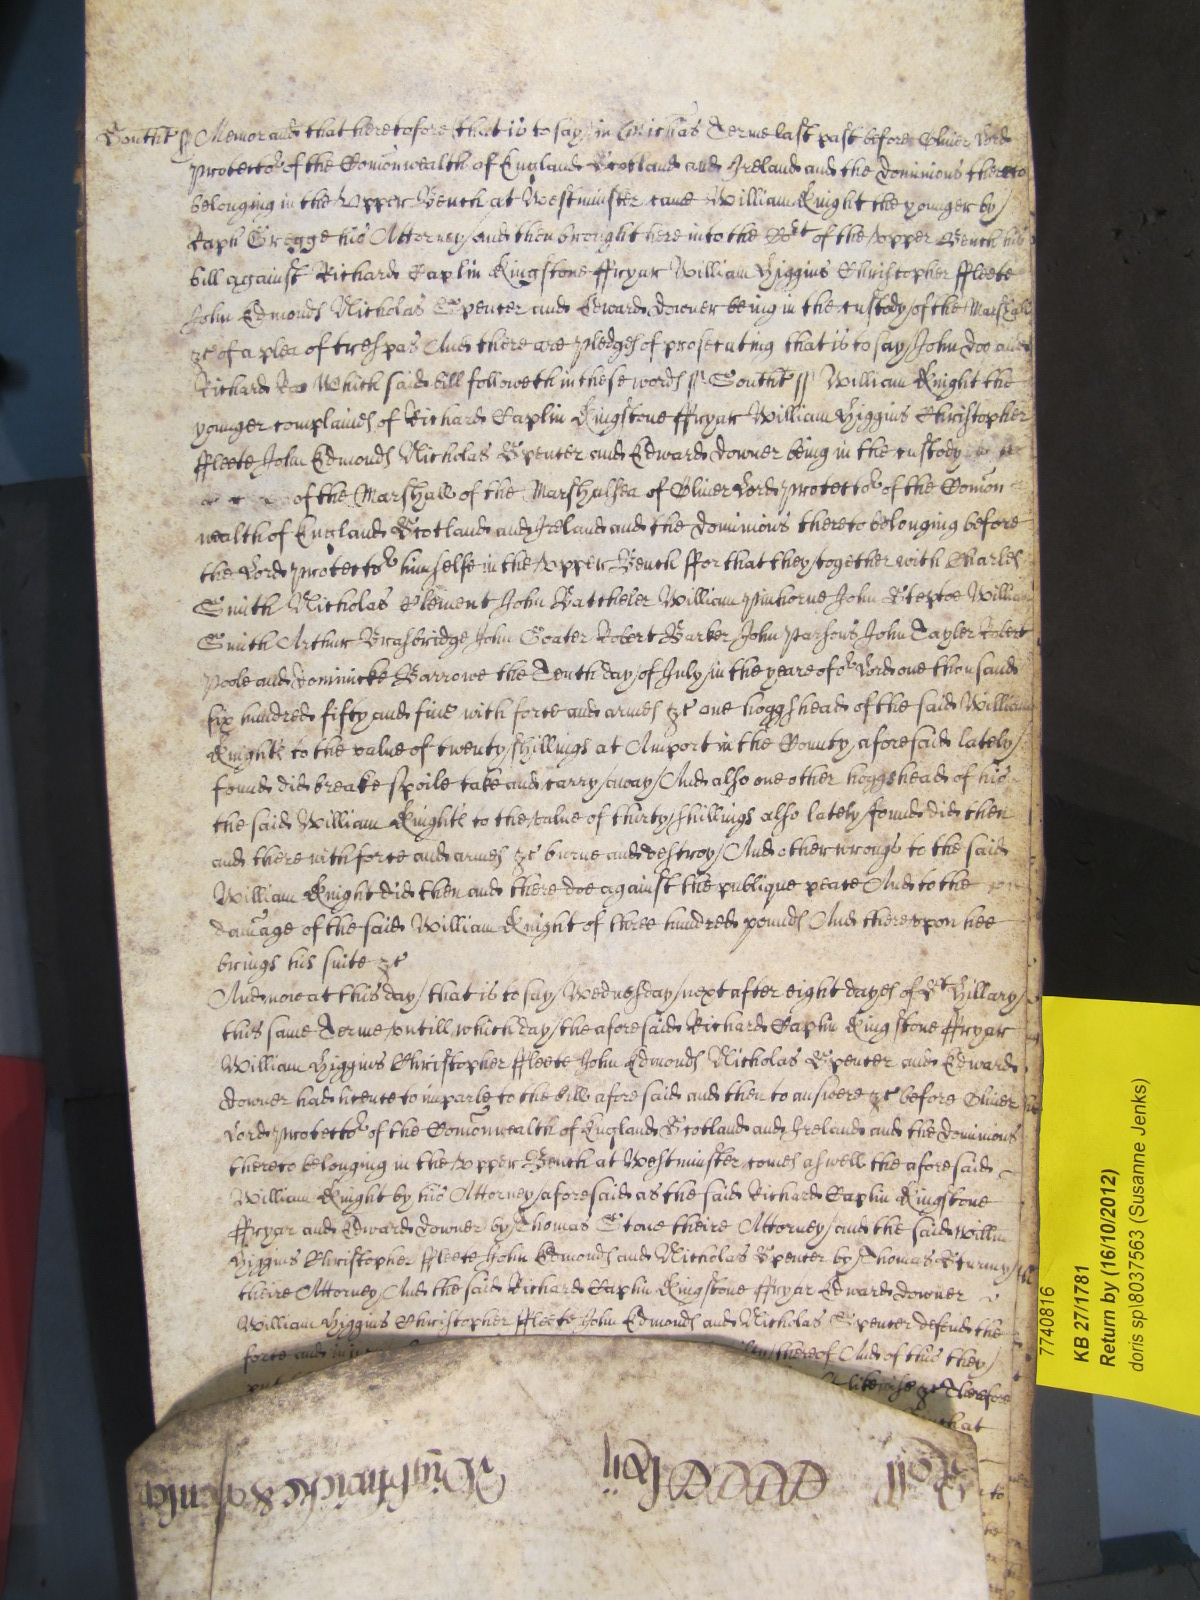 Southt ss Memorand that heretofore that is to say in Michas Terme last past before Oliver Lord
Protector of the Comonwealth of England Scotland and Ireland and the dominions thereto
belonging in the upper Bench at Westminster came William Knight the younger by
Raph Gregge his Attorney and then brought here into the Cort of the upper Bench his
bill against Richard Caplin Kingstone ffryar William Higgins Christopher ffleete
John Edmonds Nicholas Spencer and Edward Downer being in the custody of the Marshall
&c of a plea of trespas And there are pledges of prosecuting that is to say John Doo and
Richard Roo Which said bill followeth in these words ss Southt ss William Knight the
younger complaines of Richard Caplin Kingstone ffryar William Higgins Christopher
ffleete John Edmonds Nicholas Spencer and Edward Downer being in the custody
of the Marshall of the Marshalsea of Oliver Lord Protector of the Comon
wealth of England Scotland and Ireland and the dominions thereto belonging before
the Lord Protector himselfe in the upper Bench ffor that they together with Charles
Smith Nicholas Clement John Batcheler William Pinhorne John Steptoe William
Smith Arthur Brasbridge John Goater Robert Barker John Parsons John Tayler Robert
Poole and Dominicke Barrowe the Tenth day of July in the yeare of or Lord one thousand
six hundred fifty and five with force and armes &c one hoggshead of the said William
Knights to the value of twenty shillings at Amport in the County aforesaid lately
found did breake spoile take and carry away And also one other hoggshead of his
the said William Knights to the value of thirty shillings also lately found did then
and there with force and armes &c burne and destroy And other wrongs to the said
William Knight did then and there doe against the publique peace And to the
damage of the said William Knight of three hundred pounds And thereupon hee
brings his suite &c
And now at this day that is to say Wednesday next after eight dayes of St Hillary
this same Terme untill which day the aforesaid Richard Caplin Kingstone ffryar
William Higgins Christopher ffleete John Edmonds Nicholas Spencer and Edward
Downer had licence to imparle to the bill aforesaid and then to answere &c before Oliver
Lord Protector of the Comonwealth of England Scotland and Ireland and the dominions
thereto belonging in the upper Bench at Westminster comes aswell the aforesaid
William Knight by his Attorney aforesaid as the said Richard Caplin Kingstone
ffryar and Edward Downer by Thomas Stone theire Attorney and the said Willm
Higgins Christopher ffleete John Edmonds and Nicholas Spencer by Thomas Sturmy
theire Attorney And the said Richard Caplin Kingstone ffryar Edward Downer
William Higgins Christopher ffleete John Edmonds and Nicholas Spencer defend the
force and thereof And of this they
put likewise &c Therefore
that
Roll
7740816
KB 27/1781
Return by (16/10/2012)
doris sp\8037563 (Susanne Jenks)